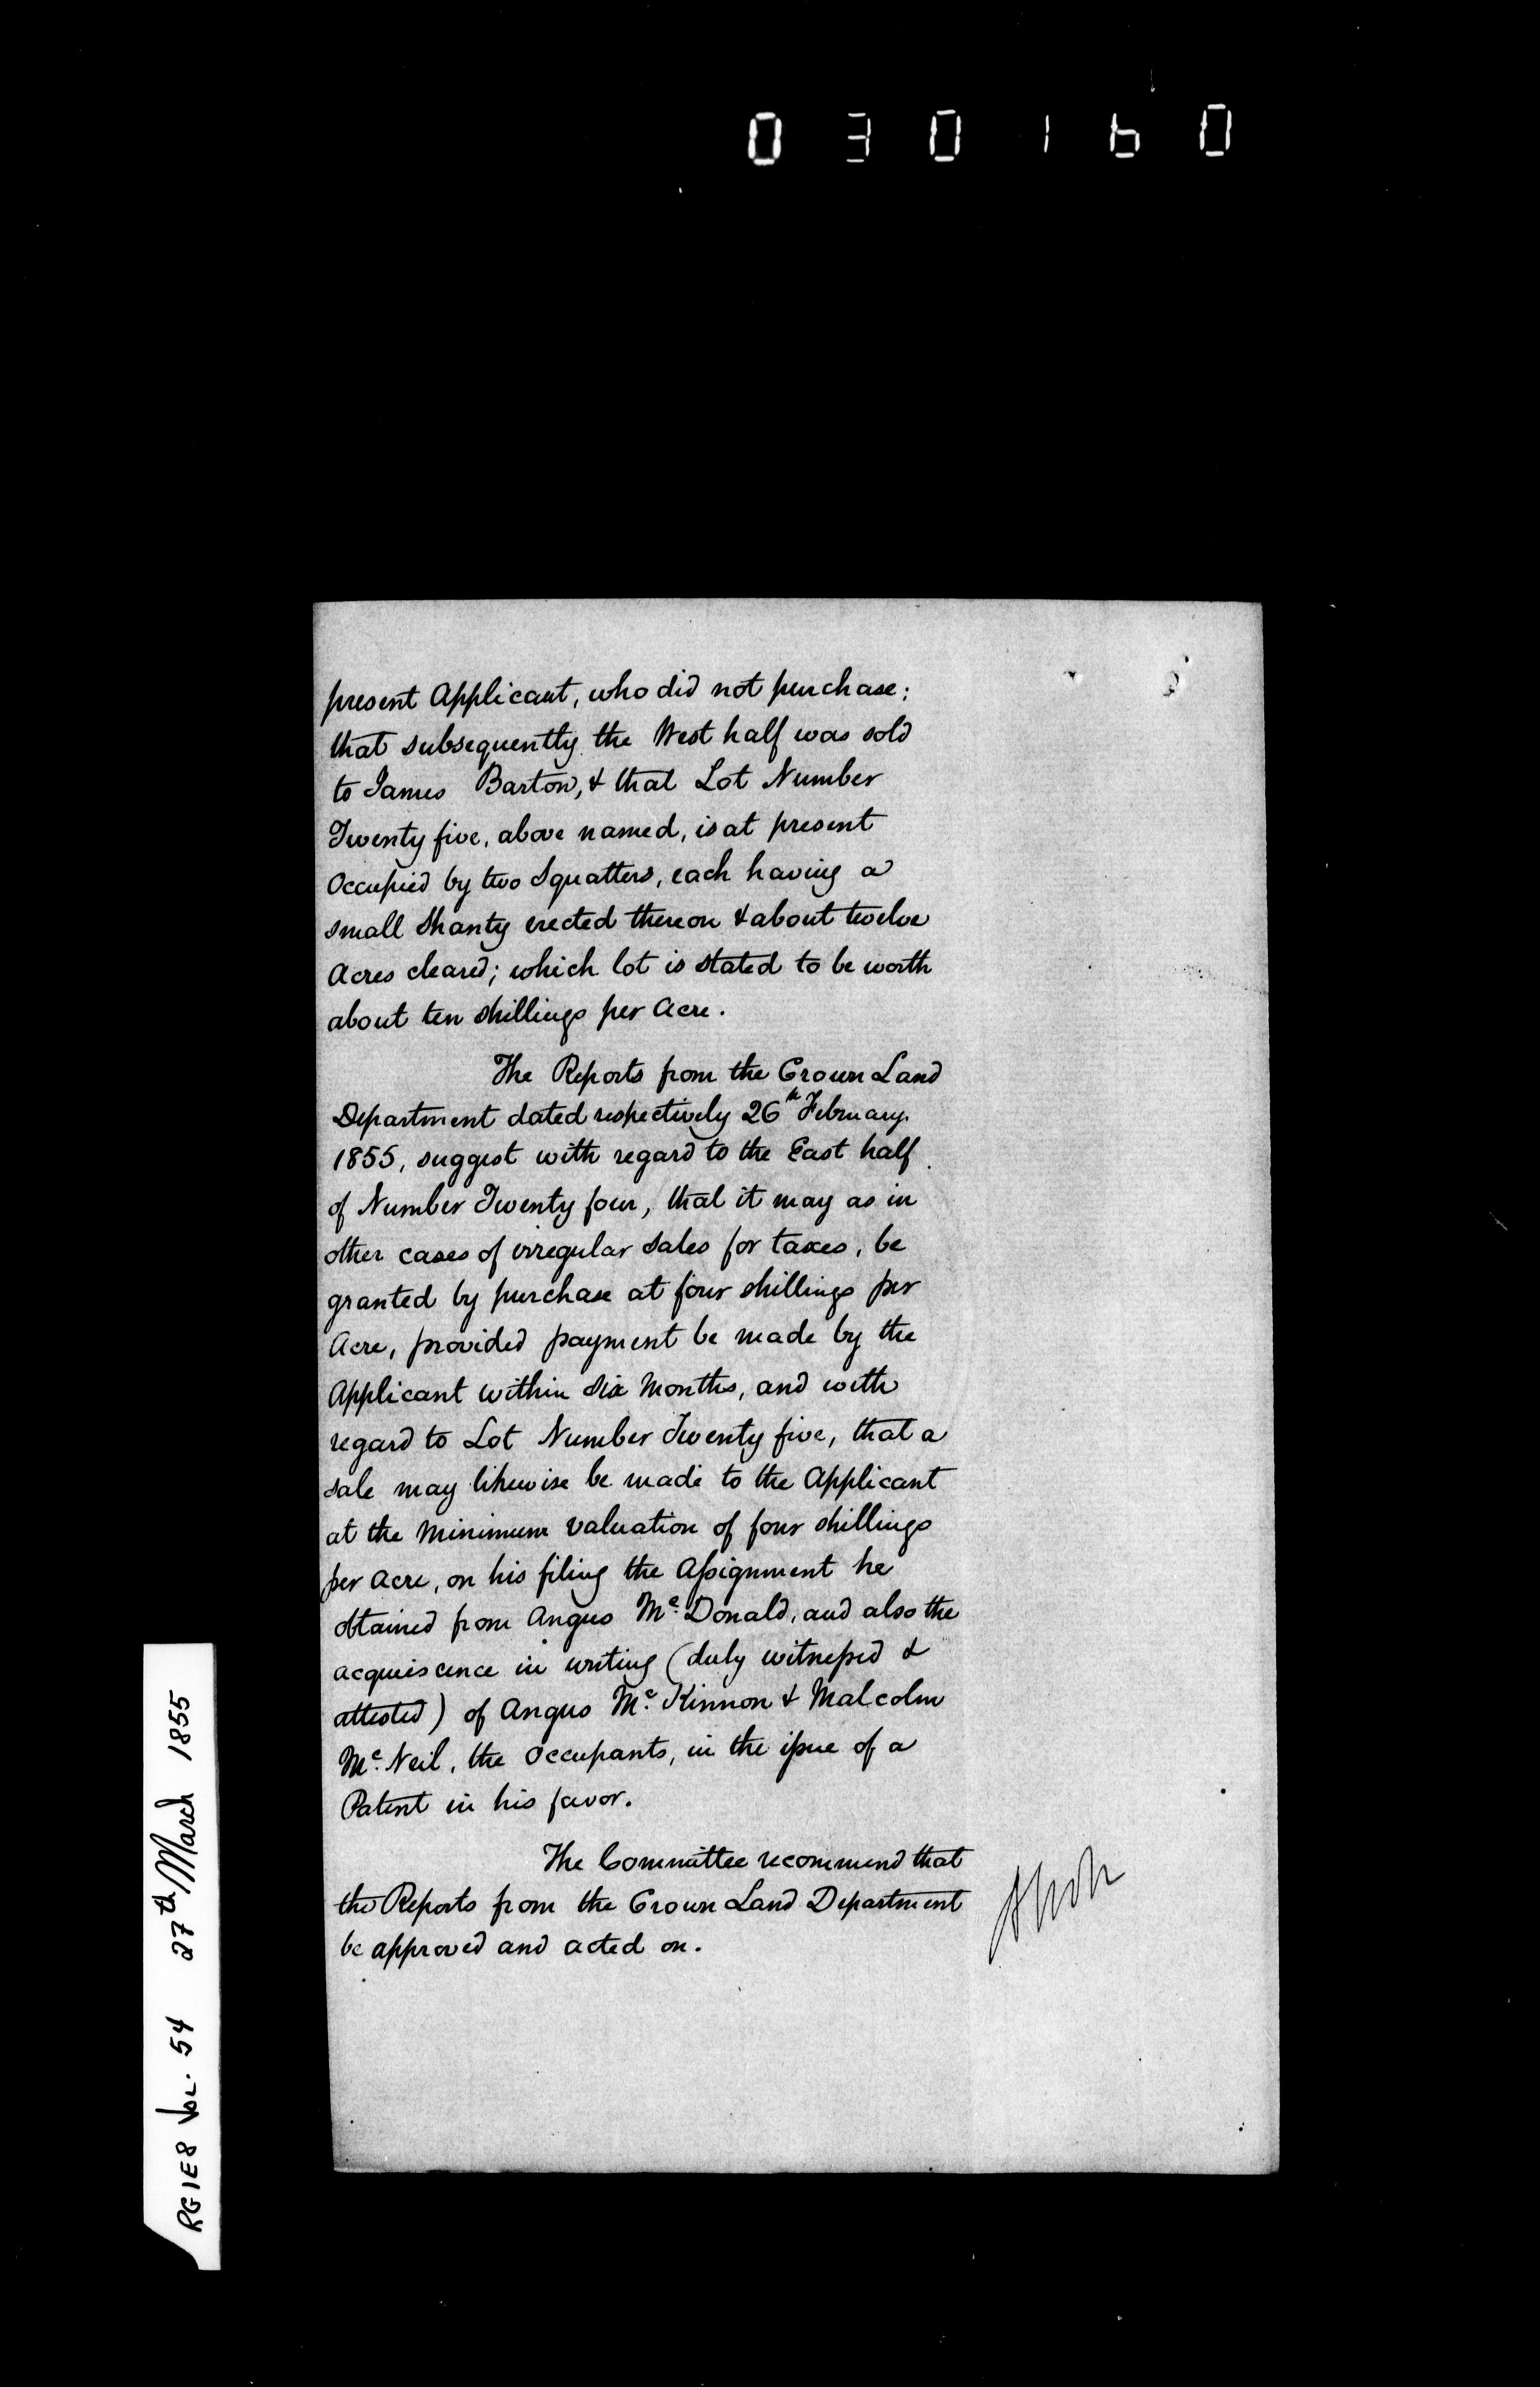 030160
present Applicant, who did not purchase;
that subsequently the West half was sold
to James Barton, & that Lot Number
Twenty five, above named, is at present
Occupied by two Squatters, each having a
small Shanty erected thereon & about twelve
Acres cleared; which lot is stated to be worth
about ten shillings per Acre.
The Reports from the Crown Land
Department dated respectively 26th February.
1855, suggest with regard to the East half
of Number Twenty four, that it may as in
other cases of irregular sales for taxes, be
granted by purchase at four shillings per
Acre, provided payment be made by the
Applicant within six Months, and with
regard to Lot Number Twenty five, that a
sale may likewise be made to the Applicant
at the Minimum Valuation of four shillings
per Acre, on his filing the Assignment he
obtained from Angus Mc. Donald, and also the
acquiescence in writing (duly witnessed &
attested) of Angus Mc. Kinnon & Malcolm
Mc. Neil, the Occupants, in the issue of a
Patent in his favor.
The Committee recommend that
the Reports from the Crown Land Department
be approved and acted on.
RG1E8 Vol. 54 27th March 1855